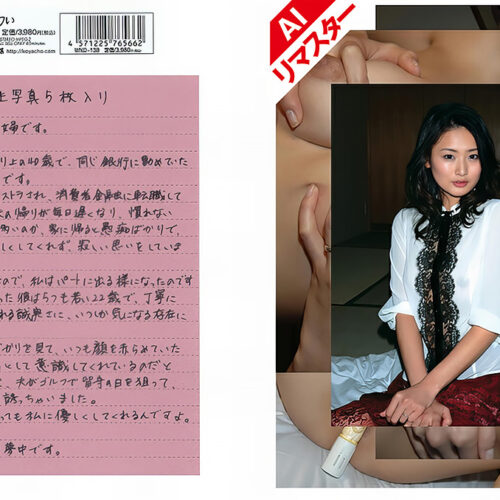 つい
定価/3,980円(税込)
http://koyacho.com
4 571225 765662
生写真5枚入り
婦です。
り上の40歳で、同じ銀行に勤めていた
です。
ストラされ、消費者金融に転職して
の帰りが毎日遅くなり、慣れない
多いのか、家に帰ると愚痴ばかりで、
しくしてくれず、寂しい思いをしていま
ので、私はパートに出る様になったのです
った彼はうちも若い22歳で、丁寧に
れる誠実さに、いつか気になる存在に
がりを見て、いつも顔を赤らめていた
として意識してくれているのだと
、夫がゴルフで留守の日を狙って、
誘っちゃいました。
っても私に優しくしてくれるんですよ。
夢中です。
AI
リマスター